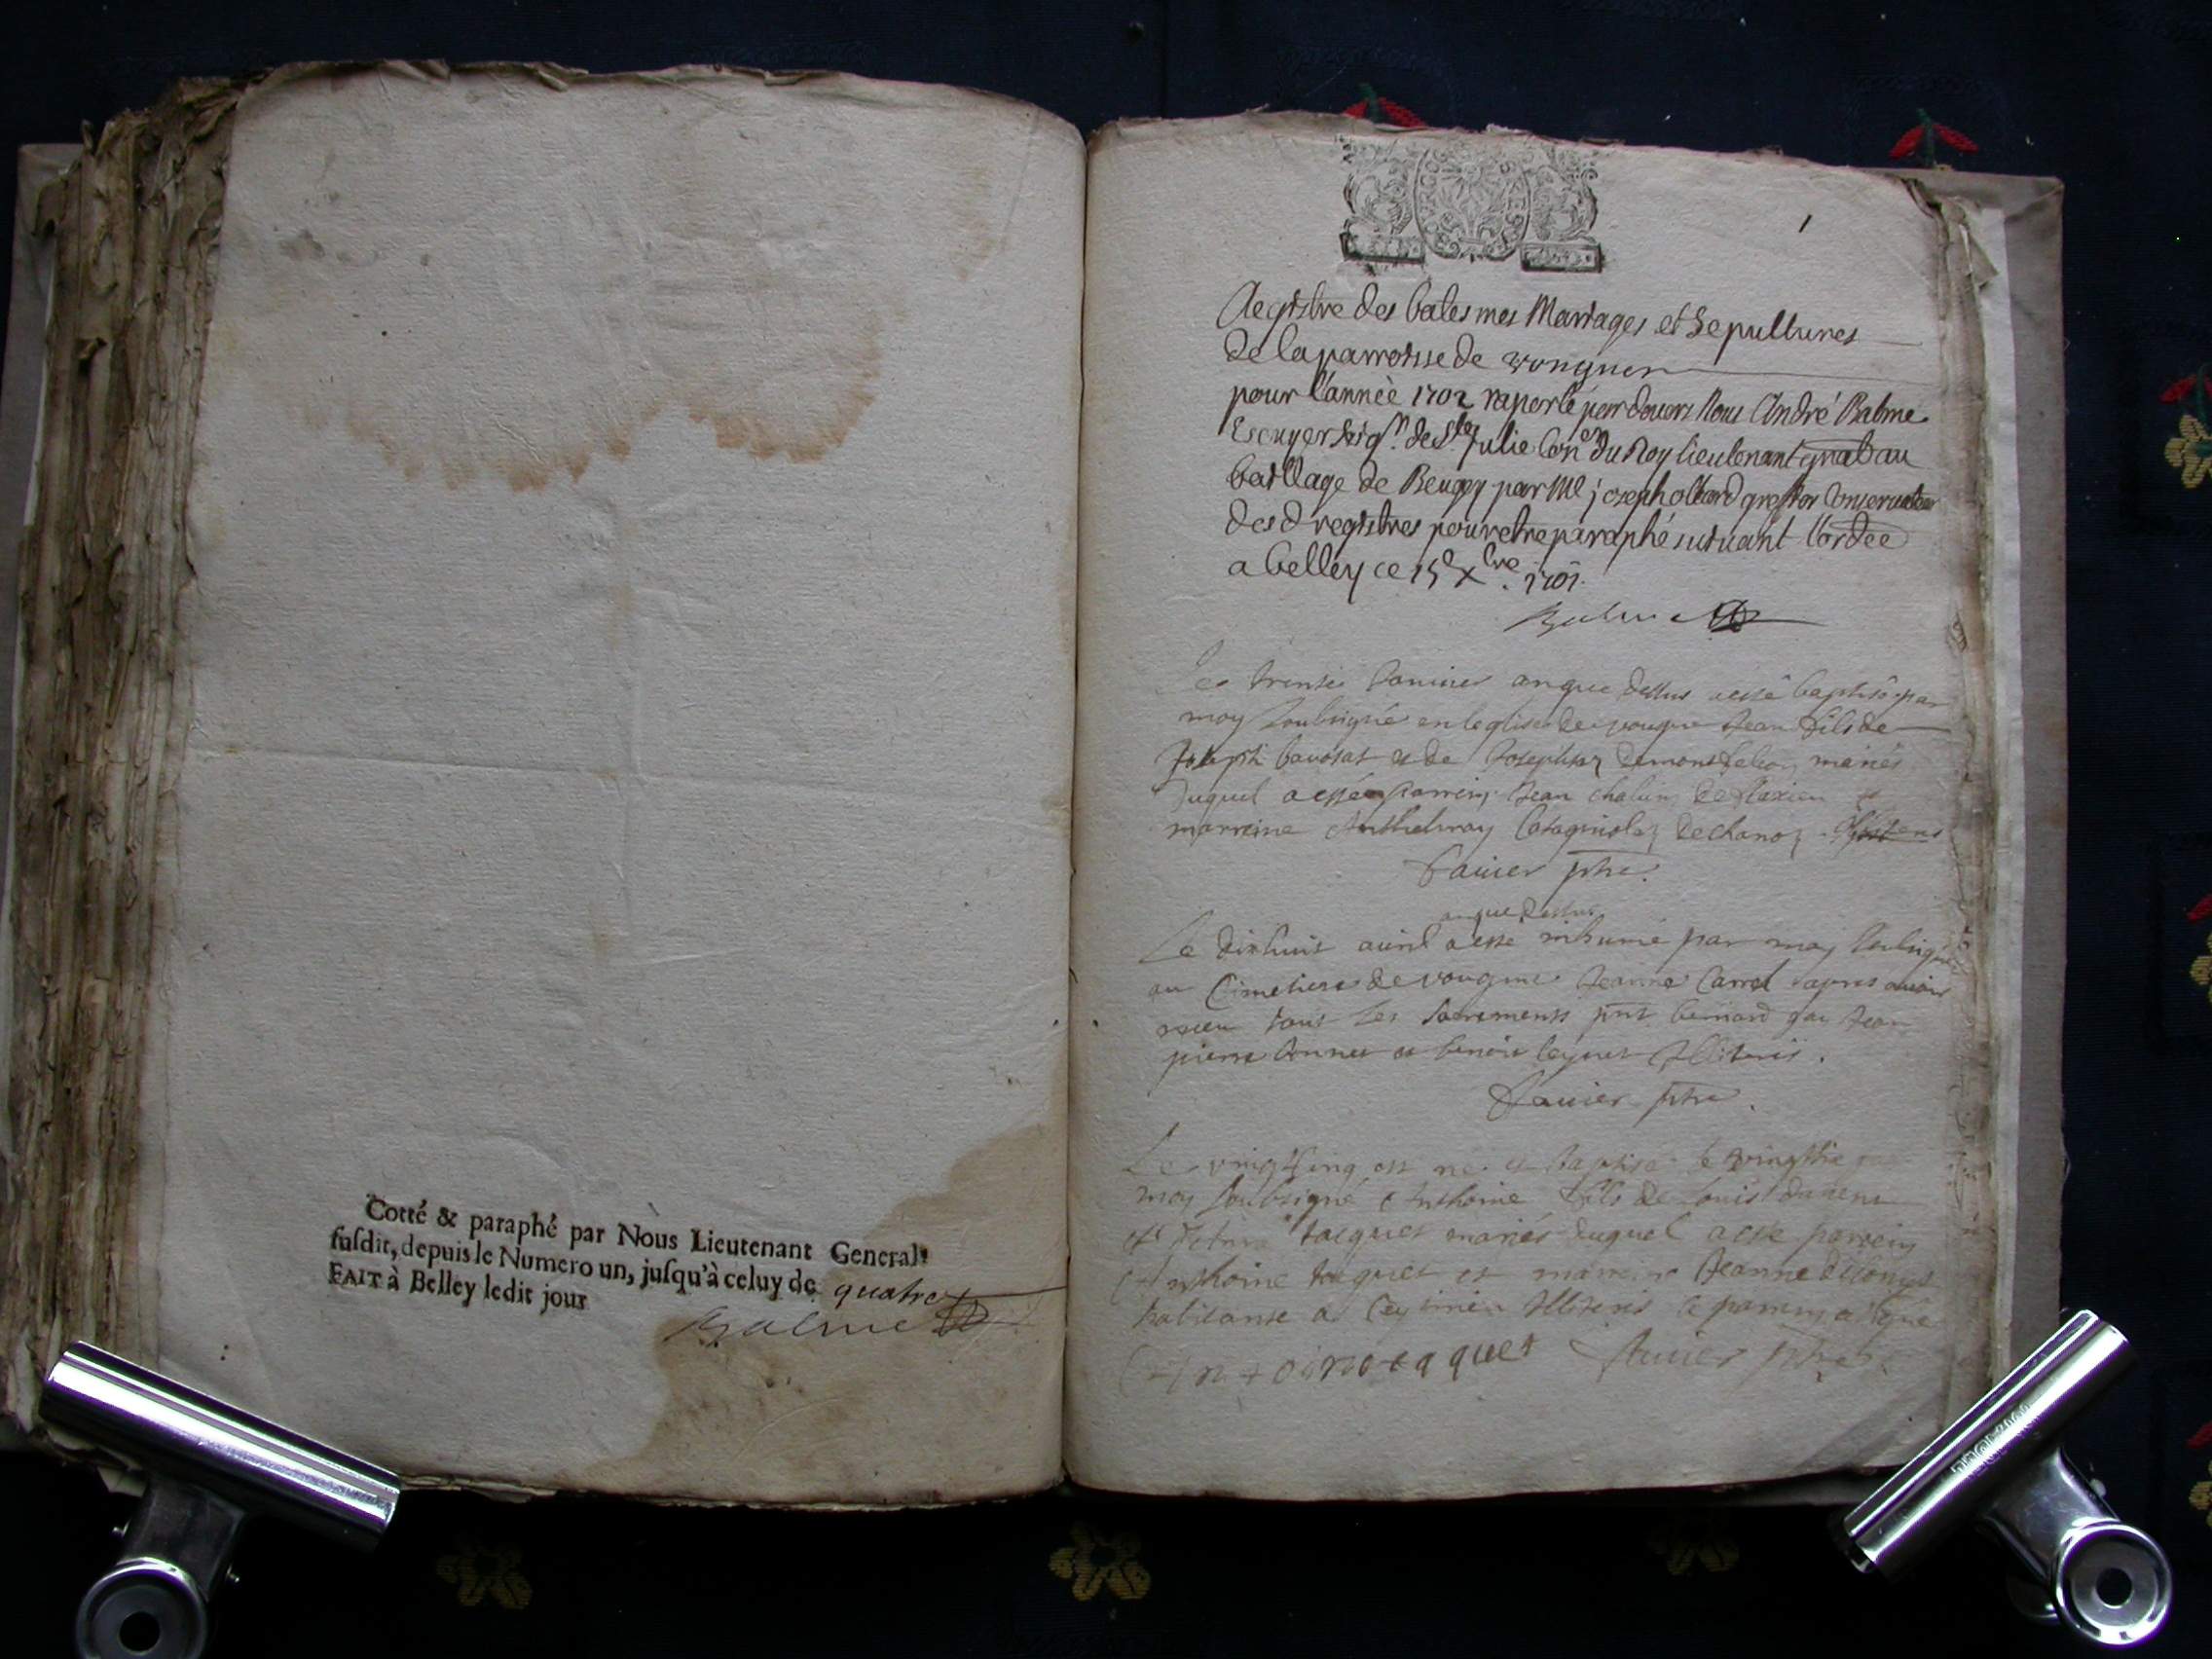 Cotté & paraphé par Nous Lieutenant General
susdit, depuis le Numero un, jusqu'à celuy de quatre
FAIT à Belley ledit jour
Balme
1
Registre des batesmes Mariages et Sepultures
de la parroisse de vongne
pour l'année 1702 raporté par devers Nous André Balme
Escuyer Seigr. de Ste Julie Coner du Roy lieutenant gnal au
baillage de Beugey par Me joseph greffier Conservateur
des d registres pour etre paraphé suivant l'ordce
a belley ce 15e Xbre. 1701.
Balme
Le trente Janvier an que dessus a esté baptisé par
moy soubsigné en leglise de vongne Jean fils de
Joseph bavosat & de Josephte mariés
duquel a esté parrein Jean chalin de et
marreine de chanoz
Favier ptre.
an que dessus
Le dixhuit avril a esté inhumé par moy soubsigné
au Cimetiere de vongne Jeanne Carrel apres avoir
receu tous les sacrements pnt bernard gay Jean
pierre & benoit illiteris.
Favier ptre.
Le vingtcinq est né & baptisé le vingtsix
moy soubsigné Anthoine fils de louis
et tacquet mariés duquel a esté parrein
Anthoine taquet et marreine Jeanne
habitante a Ceyzerieu illiteris le parrein a signé
Antoine taquet Favier ptre.